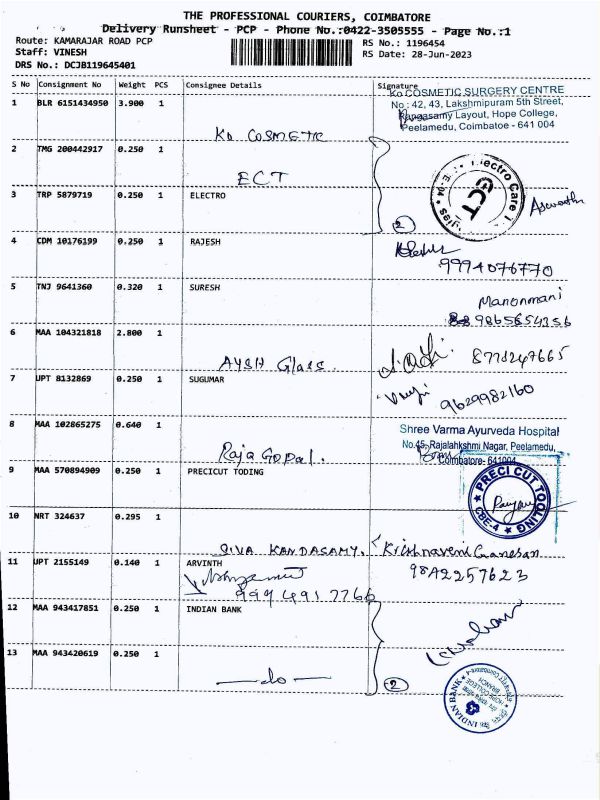 THE PROFESSIONAL COURIERS, COIMBATORE
Delivery Runsheet - PCP - Phone No.:0422-3505555 - Page No.:1
Route: KAMARAJAR ROAD PCP
Staff: VINESH
DRS No.: DCJB119645401
RS No.: 1196454
RS Date: 28-Jun-2023
S No Consignment No Weight PCS Consignee Details Signature
1 BLR 6151434950 3.900 1 KO COSMETIC
Ko COSMETIC SURGERY CENTRE
No : 42, 43, Lakshmipuram 5th Street,
Rangasamy Layout, Hope College,
Peelamedu, Coimbatoe - 641 004
2 TMG 200442917 0.250 1 ECT
3 TRP 5879719 0.250 1 ELECTRO
2
ECT
Aswath
4 CDM 10176199 0.250 1 RAJESH
9994076770
5 TNJ 9641360 0.320 1 SURESH
Manonmani
9865654356
6 MAA 104321818 2.800 1 AYSH Glass.
7 UPT 8132869 0.250 1 SUGUMAR
9629982160
8 MAA 102865275 0.640 1 Raja Gopal.
Shree Varma Ayurveda Hospital
No.45, Rajalahkshmi Nagar, Peelamedu,
Coimbatore- 641004
9 MAA 570894909 0.250 1 PRECICUT TODING
PRECI CUT TOOLING
CBE-4
10 NRT 324637 0.295 1 SIVA KANDASAMY.
Krishnaveni Ganesan
9842257623
11 UPT 2155149 0.140 1 ARVINTH
12 MAA 943417851 0.250 1 INDIAN BANK
13 MAA 943420619 0.250 1 —do—
2
INDIAN BANK